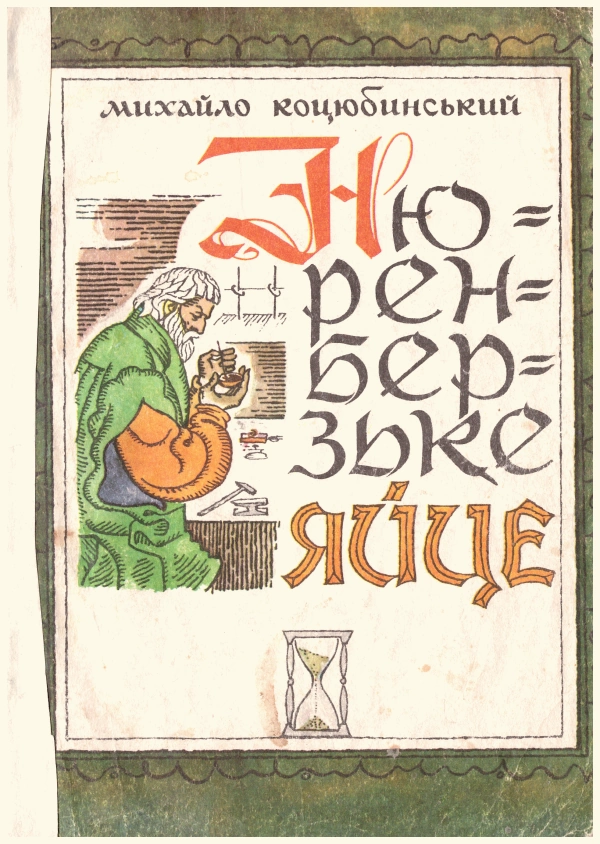 михайло коцюбинський
Ню=
рен=
бер=
зьке
яйце